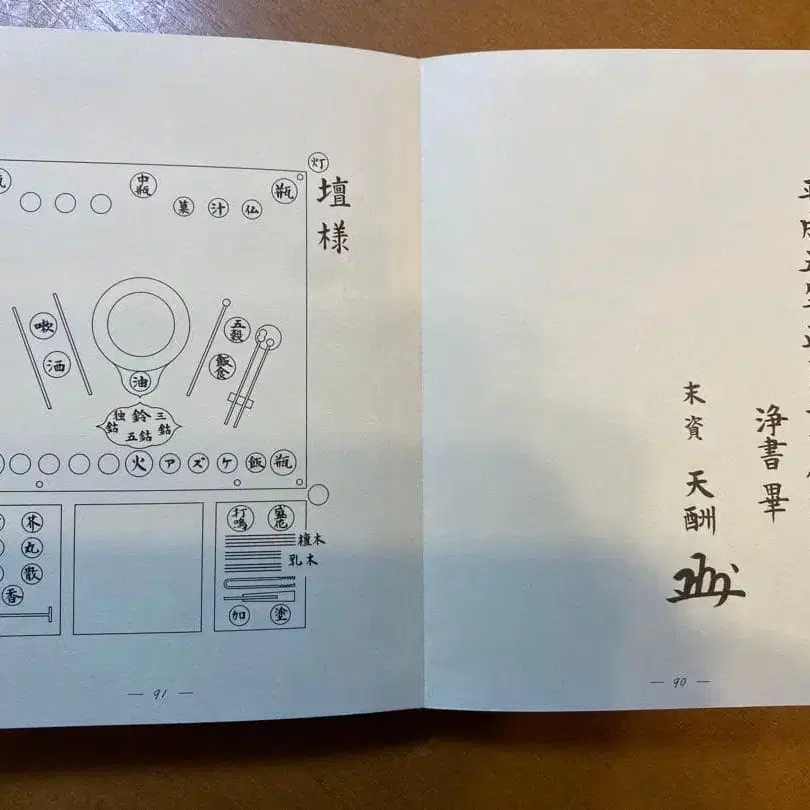 平成五年
浄書畢
末資 天酬
— 90 —
壇様
灯
瓶
中瓶
菓 汁 仏
漱
洒
五穀
飯食
油
独鈷 鈴 三鈷
五鈷
火 ア ズ ケ 飯 瓶
芥
丸
散
香
打鳴
盛花
檀木
乳木
加 塗
— 91 —